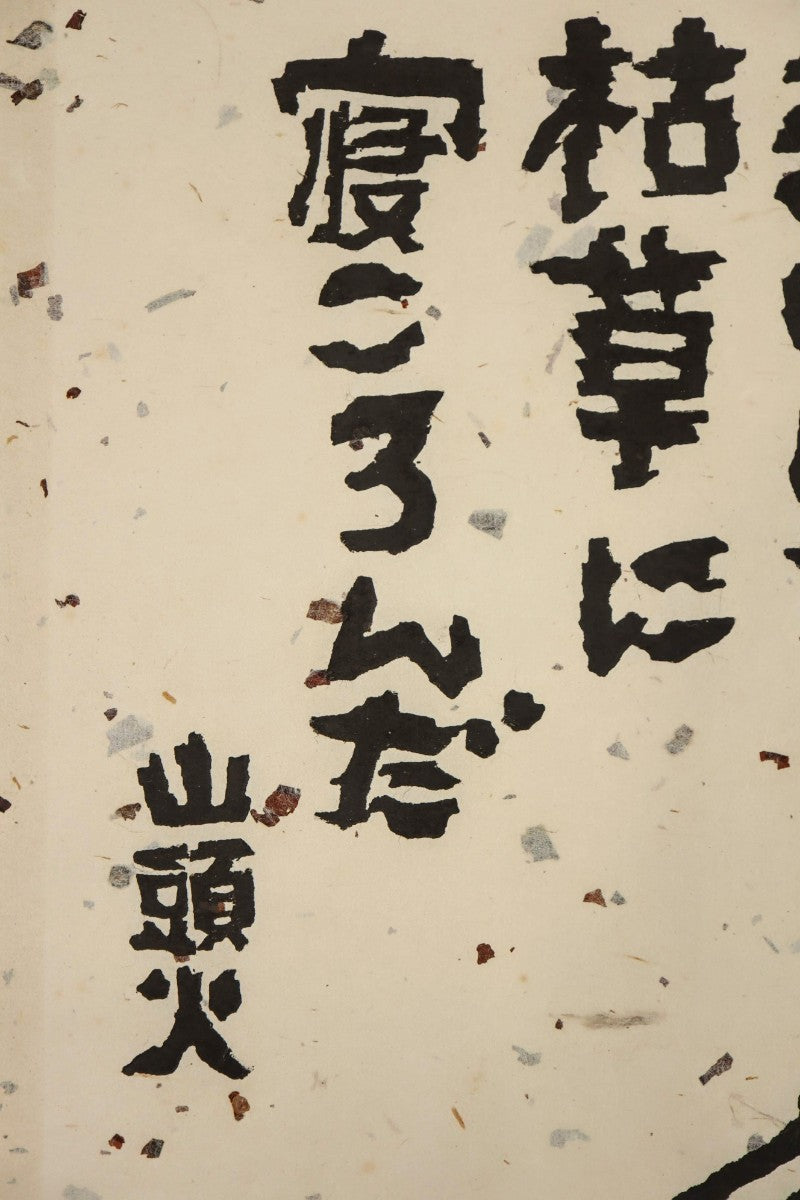 枯草に
寝ころんだ
山頭火